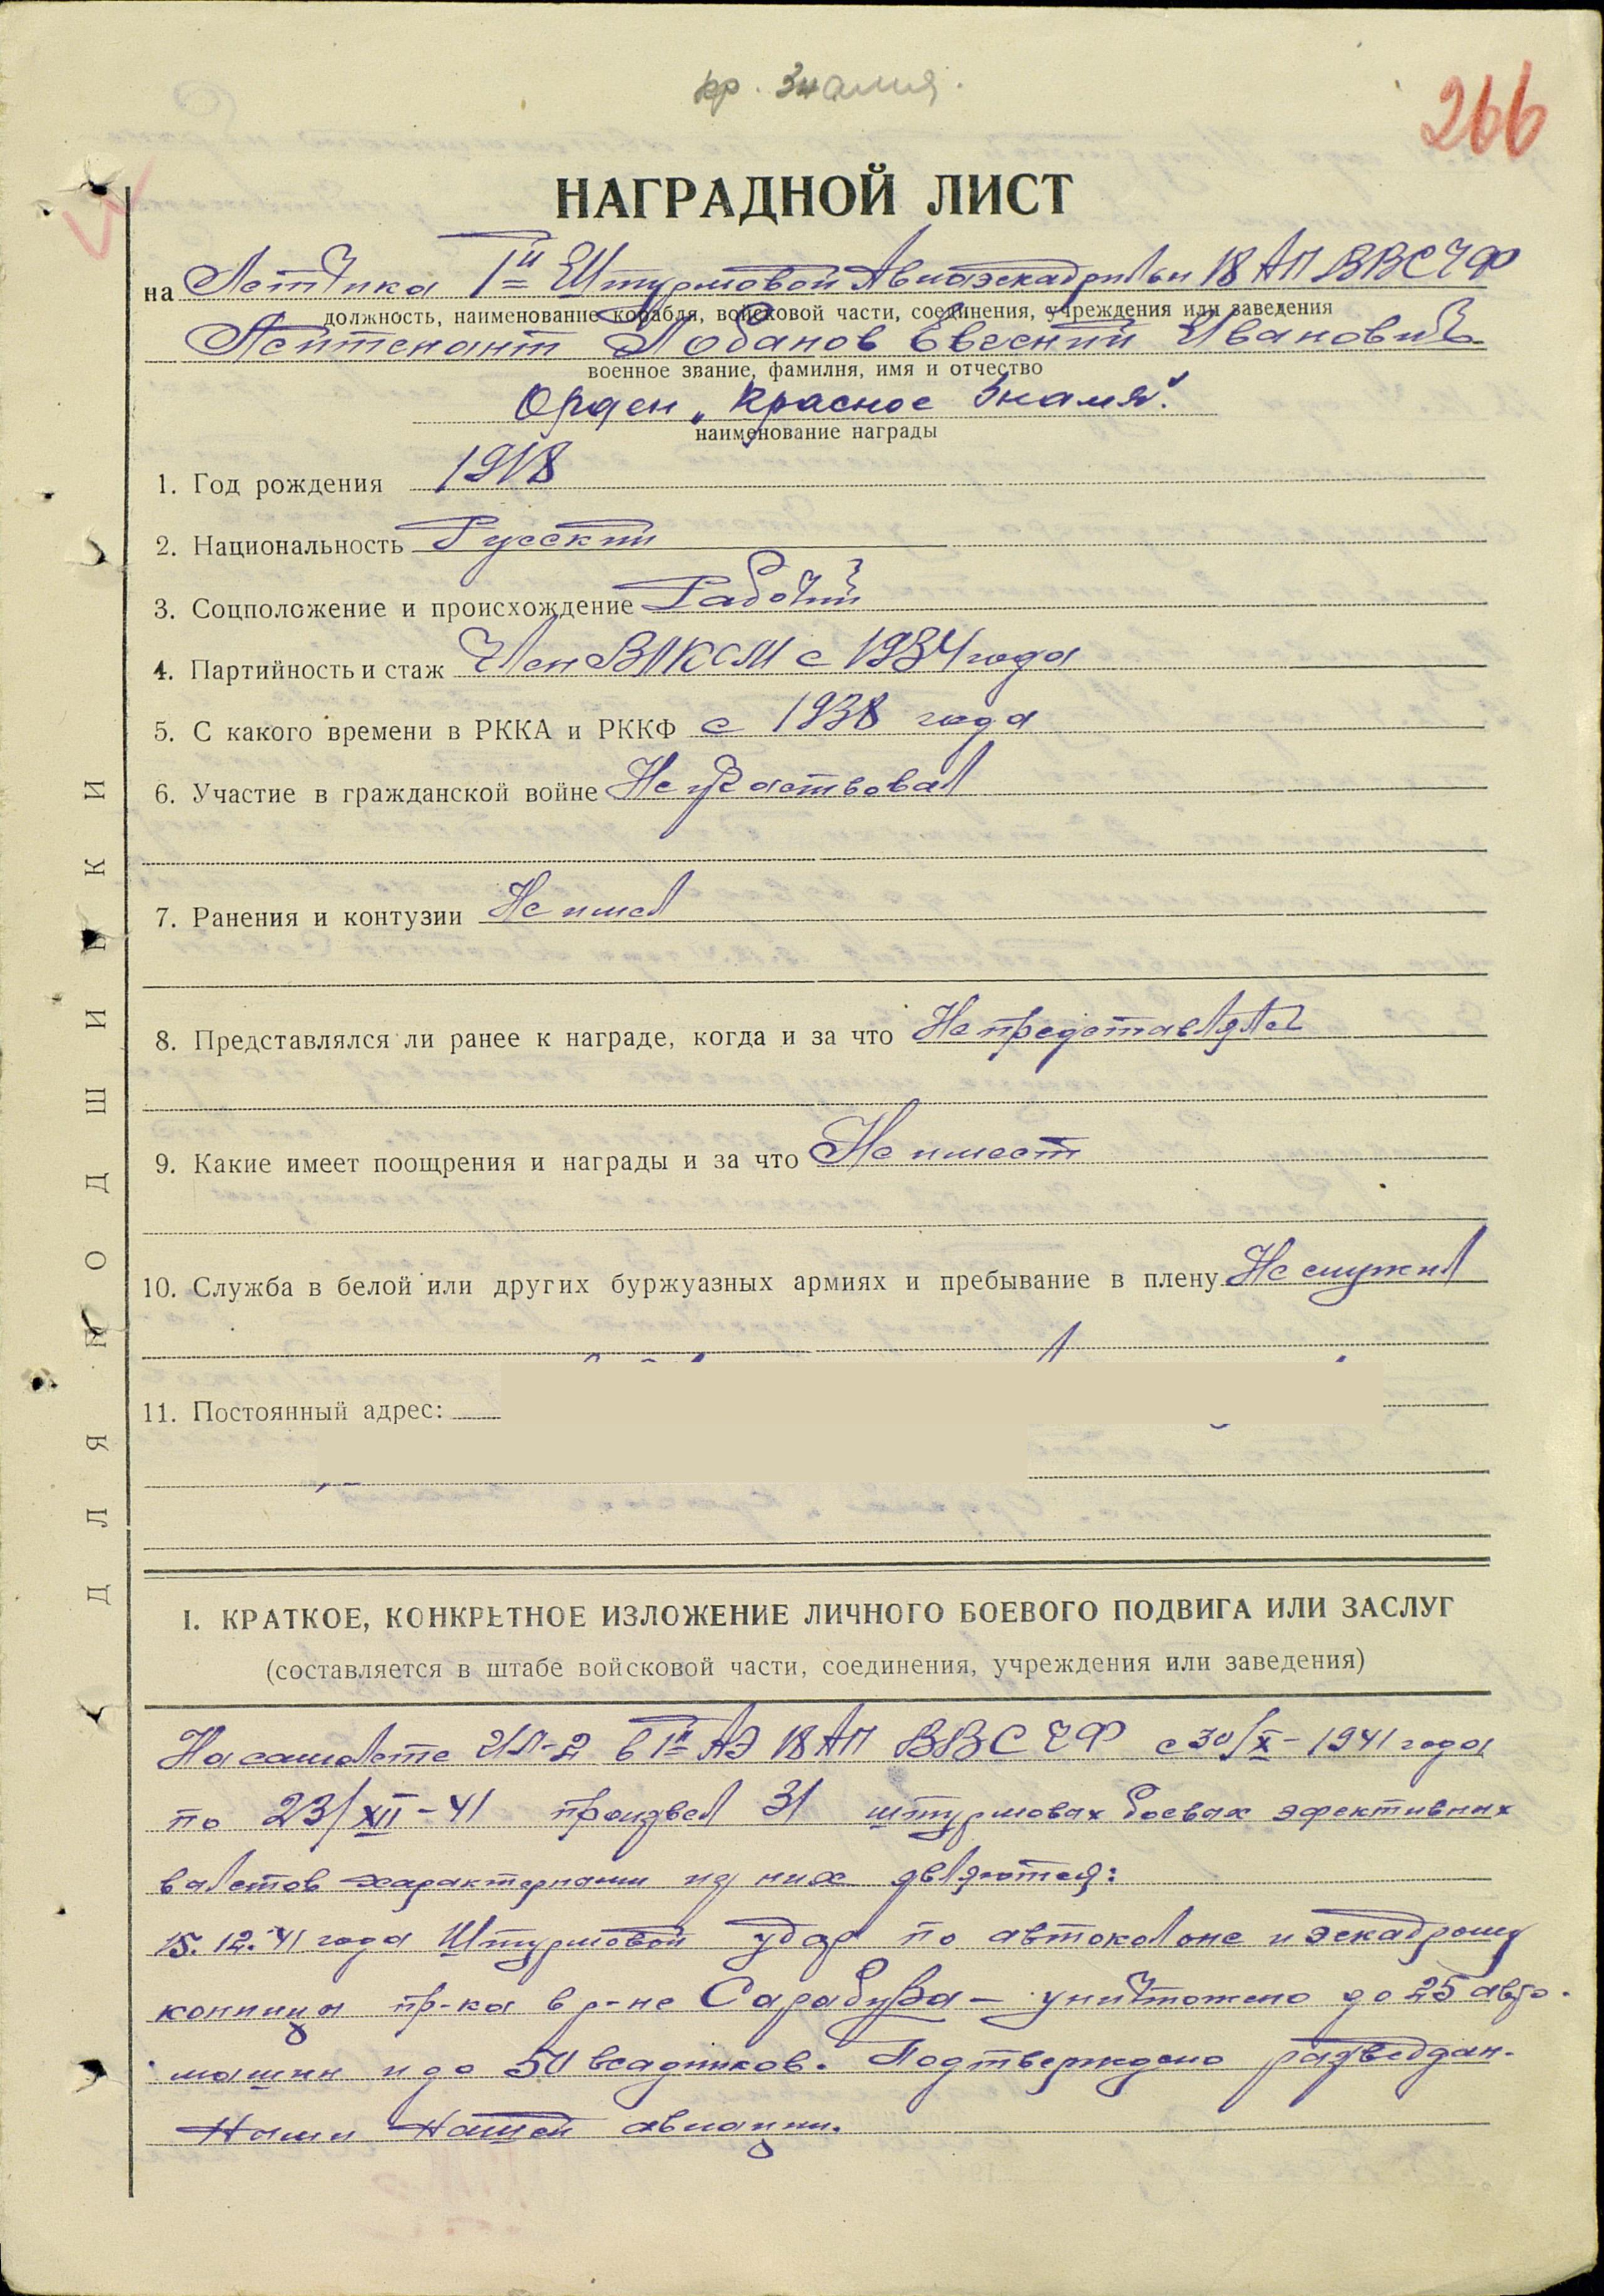 кр. Знамя.
266
НАГРАДНОЙ ЛИСТ
на Летчика 1й Штурмовой Авиаэскадрильи 18 АП ВВС ЧФ
должность, наименование корабля, войсковой части, соединения, учреждения или заведения
Лейтенант Лобанов Евгений Иванович
военное звание, фамилия, имя и отчество
Орден „Красное Знамя".
наименование награды
1. Год рождения 1918
2. Национальность Русский
3. Соцположение и происхождение Рабочий
4. Партийность и стаж Член ВЛКСМ с 1934 года
5. С какого времени в РККА и РККФ с 1938 года
6. Участие в гражданской войне Не участвовал
7. Ранения и контузии Не имел
8. Представлялся ли ранее к награде, когда и за что Не представлялся
9. Какие имеет поощрения и награды и за что Не имеет
10. Служба в белой или других буржуазных армиях и пребывание в плену Не служил
11. Постоянный адрес:
ДЛЯ ПОДШИВКИ
I. КРАТКОЕ, КОНКРЕТНОЕ ИЗЛОЖЕНИЕ ЛИЧНОГО БОЕВОГО ПОДВИГА ИЛИ ЗАСЛУГ
(составляется в штабе войсковой части, соединения, учреждения или заведения)
На самолете ИЛ-2 в 1й АЭ 18 АП ВВС ЧФ с 30/X-1941 года
по 23/XII-41 произвел 31 штурмовых боевых эфективных
вылетов характерными из них являются:
15.12.41 года Штурмовой удар по автоколоне и эскадрону
конницы пр-ка в р-не Сарабуза — уничтожено до 25 авто-
машин и до 50 всадников. Подтверждено разведдан-
ными нашей авиации.